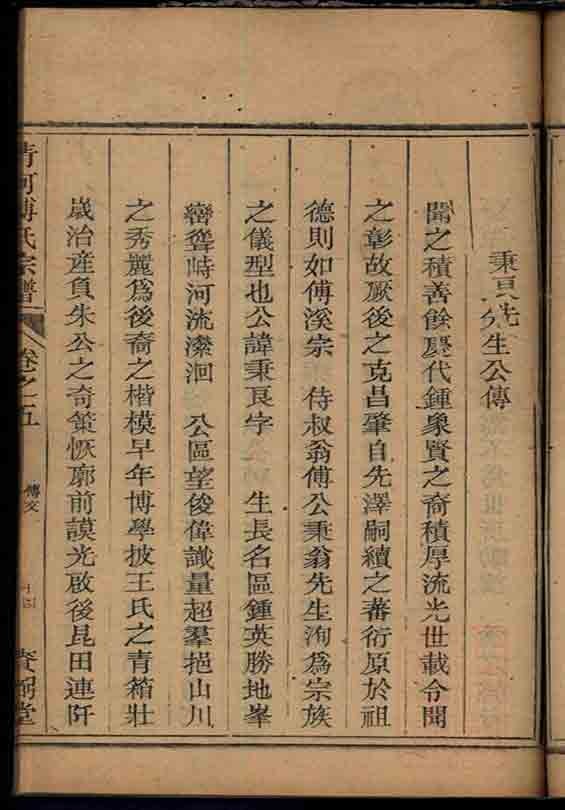 秉艮先生公傳
聞之積善餘慶代鍾象賢之裔積厚流光世載令聞
之彰故厥後之克昌肇自先澤嗣續之蕃衍原於祖
德則如傅溪宗 侍叔翁傅公秉翁先生洵為宗族
之儀型也公諱秉艮字 生長名區鍾英勝地峯
巒聳峙河流瀠洄 公區望俊偉識量超羣挹山川
之秀麗為後裔之楷模早年博學披王氏之青箱壯
歲治產負朱公之奇策恢廓前謨光啟後昆田連阡
清河傅氏宗譜 卷之五 傳文